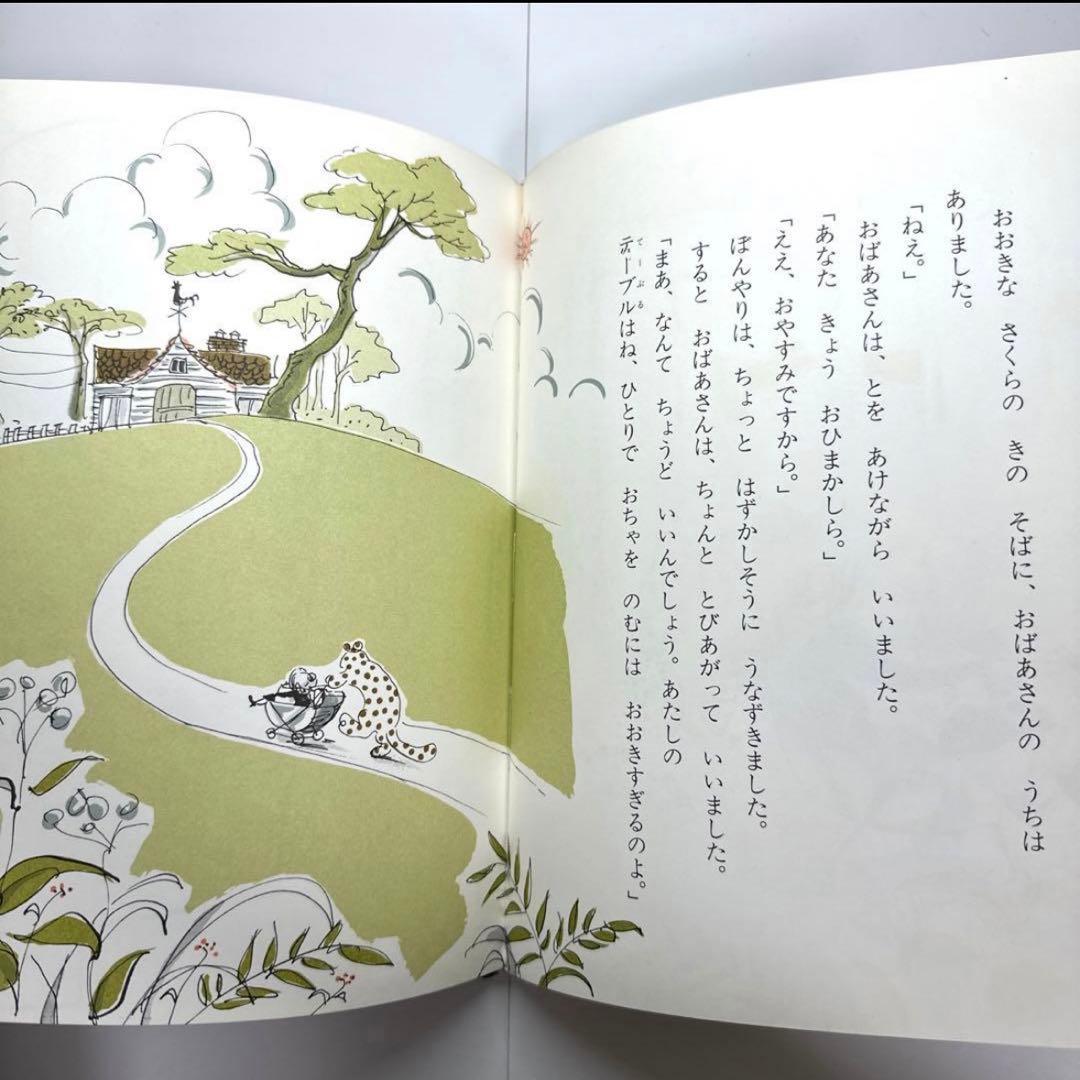 おおきな さくらの きの そばに、おばあさんの うちは
ありました。
「ねえ。」
おばあさんは、とを あけながら いいました。
「あなた きょう おひまかしら。」
「ええ、おやすみですから。」
ぼんやりは、ちょっと はずかしそうに うなずきました。
すると おばあさんは、ちょんと とびあがって いいました。
「まあ、なんて ちょうど いいんでしょう。あたしの
てーぶる
テーブルはね、ひとりで おちゃを のむには おおきすぎるのよ。」